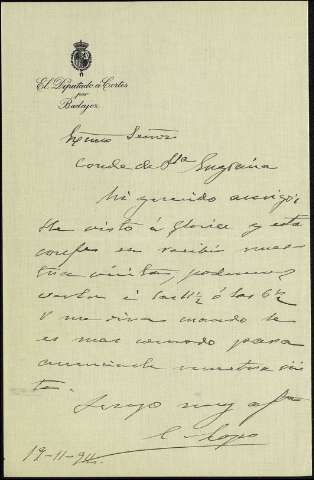 El Diputado a Cortes
por
Badajoz
Excmo Señor
Conde de Sta Engracia
Mi querido amigo,
He visto á Gloria y está
conforme en recibir nues
tra visita, podemos
verla á las 11½ ó las 6½
V me dira cuando le
es mas comodo para
anunciarle nuestra visi
ta.
Suyo muy afmo
19-11-94